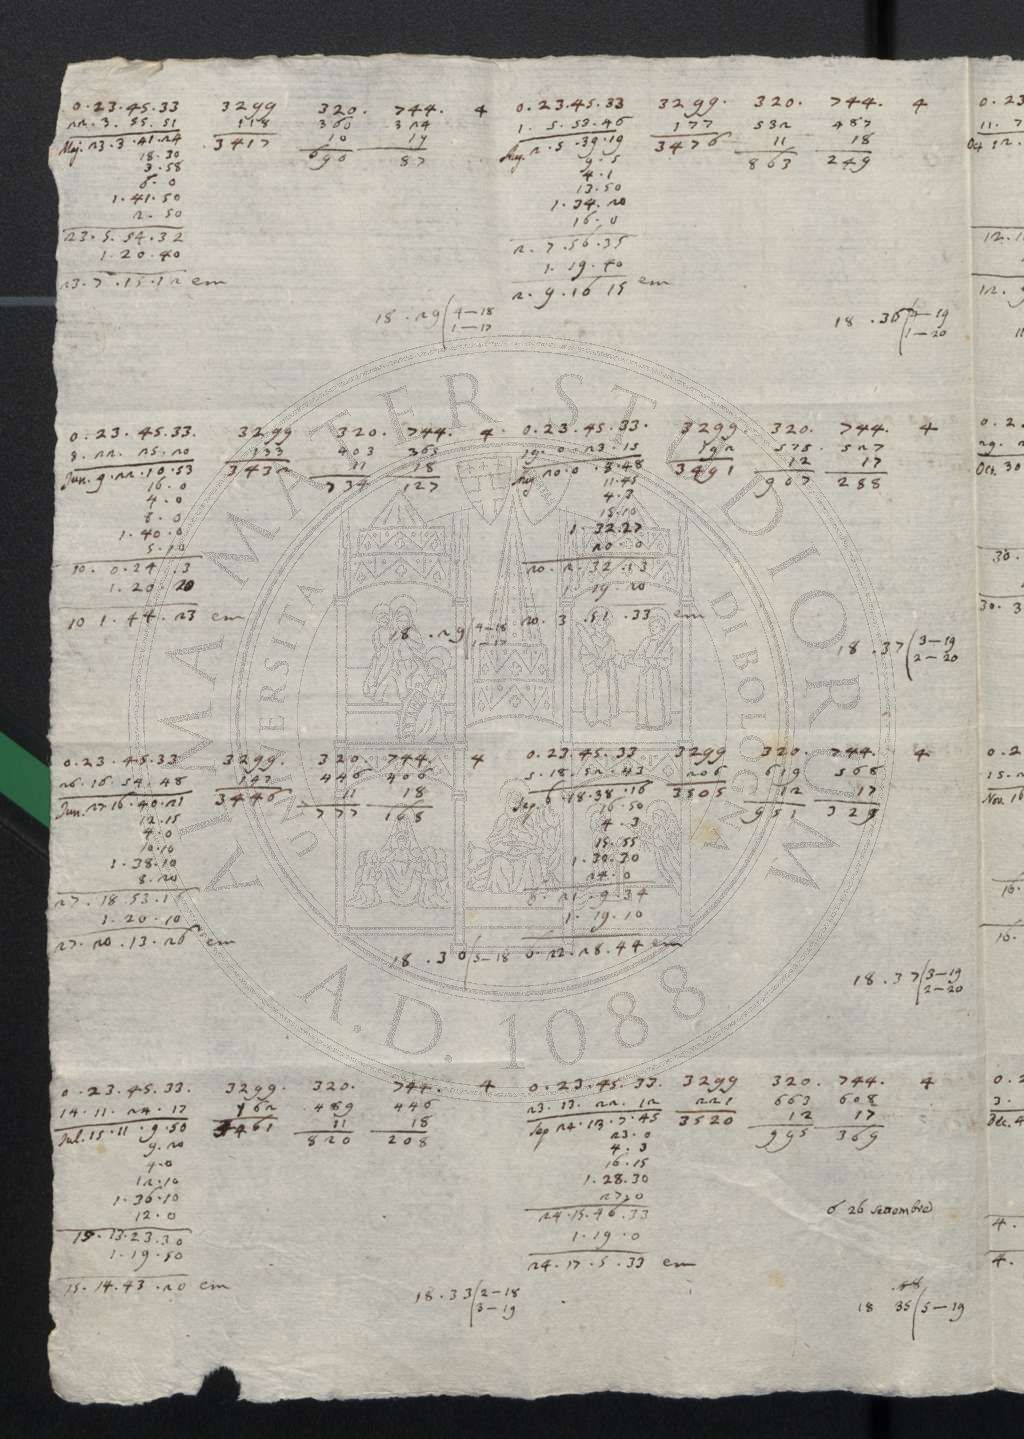 0.23.45.33 3299 320. 744. 4
22.3.55.51 118 360 324
Maj. 23.3.41.24 3417 10 19
18.30 690 87
3.58
6.0
1.41.50
2.50
23.5.54.32
1.20.40
23.7.15.12 em
18.29 4—18
1—17
0.23.45.33 3299. 320. 744. 4
1.5.53.46 177 532 487
2.5.39.19 3476 11 18
9.5 863 249
4.1
13.50
1.34.20
16.0
2.7.56.35
1.19.40
2.9.16.15 em
18.36 1—20
0.23.45.33. 3299 320. 744. 4
9.22.25.20 133 403 365
Jun. 9.22.10.53 3432 11 18
16.0 734 127
4.0
8.0
1.40.0
5.10
10.0.24.3
1.20.20
10 1.44.23 em
18.29 4—18
1—17
0.23.45.33. 3299. 320. 744. 4
19.0.23.15 192 575 527
20.0.8.48 3491 12 17
11.45 907 288
4.3
15.10
1.32.27
20.0
20.2.32.13
1.19.20
20.3.51.33 em
18.37 3—19
2—20
0.23.45.33 3299. 320. 744. 4
26.16.54.48 147 446 406
Jun. 27.16.40.21 3446 11 18
12.15 777 168
4.0
10.10
1.38.10
8.20
27.18.53.16
1.20.10
27.20.13.26 em
18.30 5—18
0.23.45.33 3299 320. 744. 4
5.18.52.43 206 619 568
Sep. 6.18.38.16 3505 12 17
16.50 951 329
4.3
15.55
1.30.30
24.0
6.21.9.34
1.19.10
6.22.28.44 em
18.37 3—19
2—20
0.23.45.33. 3299. 320. 744. 4
14.11.24.17 162 489 446
Jul. 15.11.9.50 3461 11 18
9.20 820 208
4.0
12.10
1.36.10
12.0
15.13.23.30
1.19.50
15.14.43.20 em
18.33 2—18
3—19
0.23.45.33. 3299 320. 744. 4
23.13.22.12 221 663 608
Sep 24.13.7.45 3520 12 17
23.0 995 369
4.3
16.15
1.28.30
27.0
24.15.46.33
1.19.0
24.17.5.33 em
6 26 settembre
18 35 5—19
0.23
11.7
Oct
12.1
12.9
29.
Oct. 30
30.
30.3
15.
Nov. 16
16.
16.
3.
Dec. 4
4.
4.
ALMA MATER STUDIORUM
UNIVERSITA DI BOLOGNA
A.D. 1088